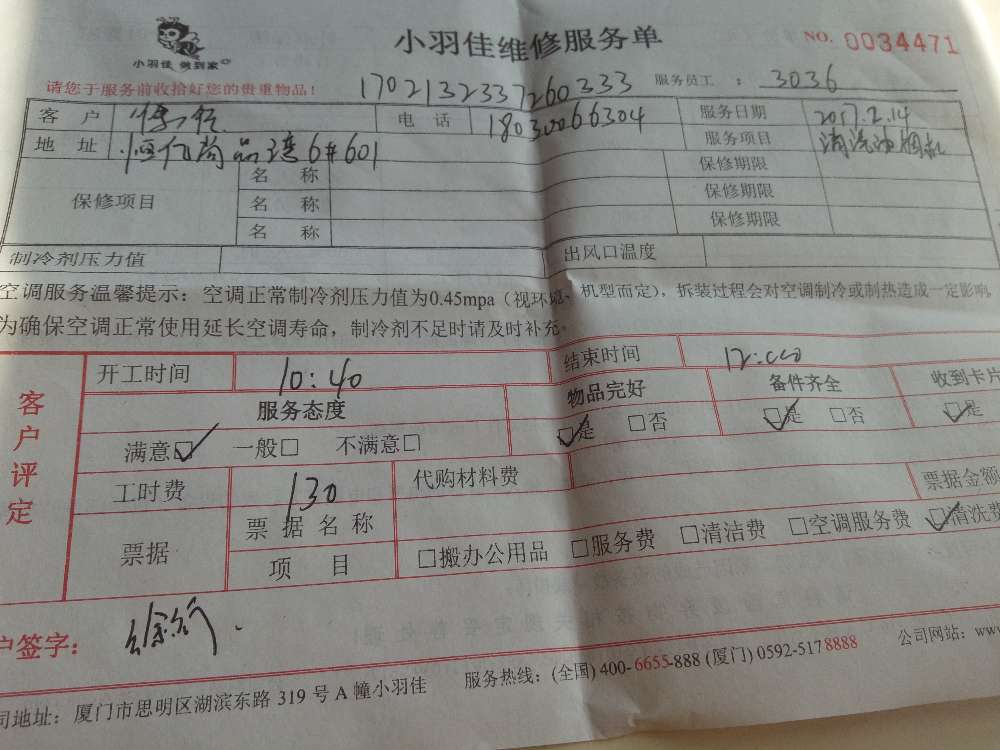 小羽佳维修服务单
NO. 0034471
小羽佳 做到家
请您于服务前收拾好您的贵重物品!
1702132337260333
服务员工 : 3036
客 户
电 话 18030066304
服务日期 2017.2.14
地 址 恒亿尚品湾6#601
服务项目 清洗油烟机
保修项目
名 称
保修期限
名 称
保修期限
名 称
保修期限
制冷剂压力值
出风口温度
空调服务温馨提示：空调正常制冷剂压力值为0.45mpa（视环境、机型而定），拆装过程会对空调制冷或制热造成一定影响，
为确保空调正常使用延长空调寿命，制冷剂不足时请及时补充。
客户评定
开工时间 10:40
结束时间 12:00
服务态度
物品完好
备件齐全
收到卡片
满意☑ 一般□ 不满意□
☑是 □否
☑是 □否
☑是
工时费 130
代购材料费
票据金额
票据
票据名称
项 目
□搬办公用品 □服务费 □清洁费 □空调服务费 ☑清洗费
户签字：
司地址：厦门市思明区湖滨东路 319 号 A 幢小羽佳
服务热线：(全国) 400-6655-888 (厦门) 0592-5178888
公司网站：www